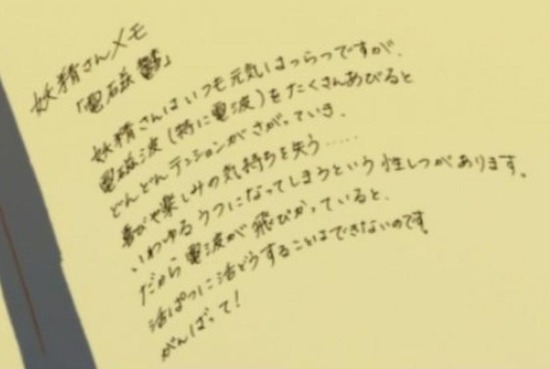 妖精さんメモ
「電磁鬱」
妖精さんはいつも元気はつらつですが、
電磁波(特に電波)をたくさんあびると
どんどんテンションがさがっていき、
喜びや楽しみの気持ちを失う……
いわゆるうつになってしまうという性しつがあります。
だから電波が飛びかっていると、
活ぱつに活どうすることはできないのです。
がんばって!